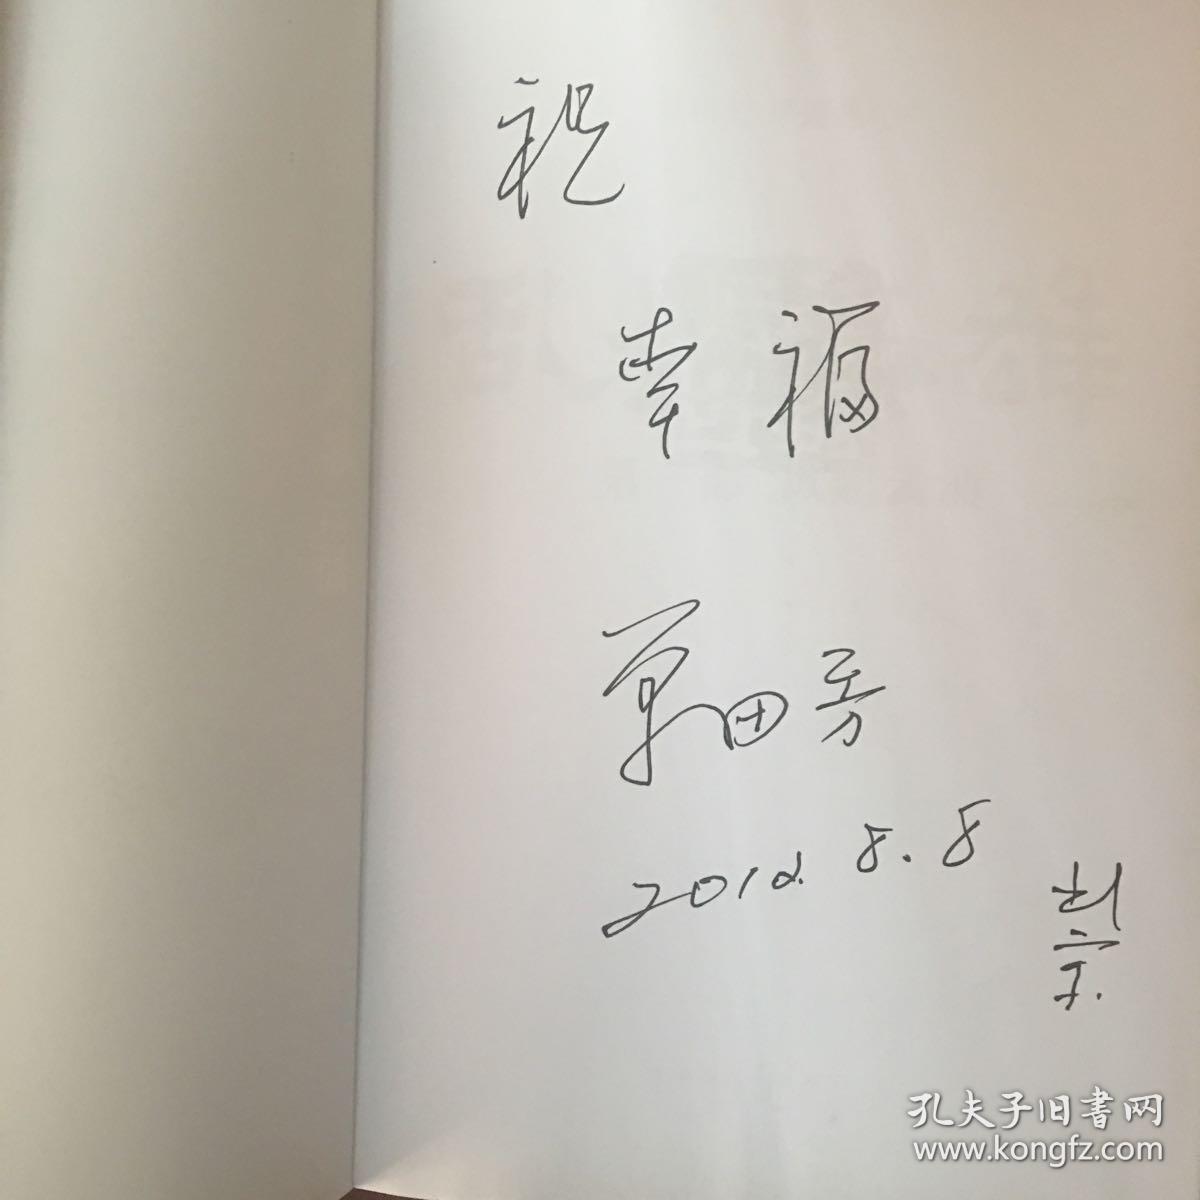 祝
幸福
单田芳
2012.8.8
北京.
孔夫子旧書网
www.kongfz.com